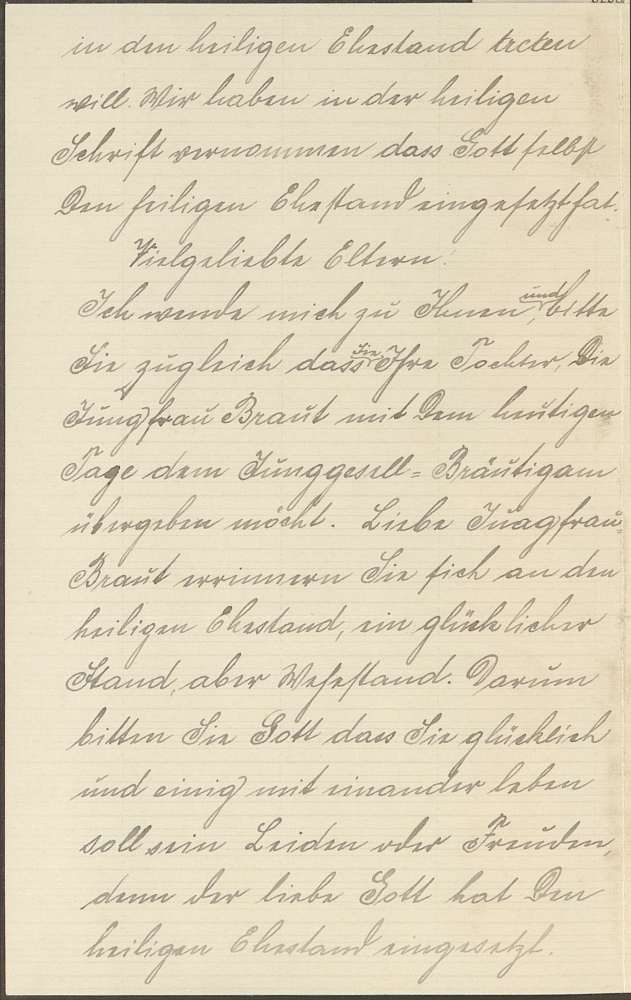 in den heiligen Ehestand treten
will. Wir haben in der heiligen
Schrift vernommen dass Gott selbst
Den heiligen Ehestand eingesetzt hat.
Vielgeliebte Eltern!
Ich wende mich zu Ihnen, und bitte
Sie zugleich dass Sie Ihre Tochter, Die
Jungfrau Braut mit Dem heutigen
Tage dem Junggesell=Bräutigam
übergeben möcht. Liebe Jungfrau=
Braut errinnern Sie sich an den
heiligen Ehestand, ein glücklicher
Stand, aber Wehestand. Darum
bitten Sie Gott dass Sie glücklich
und einig mit einander leben
soll sein Leiden oder Freuden,
denn der liebe Gott hat Den
heiligen Ehestand eingesetzt.